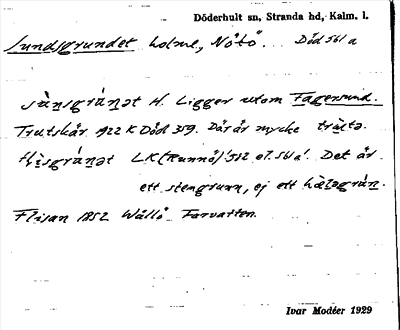 Döderhult sn, Stranda hd, Kalm. l.
Lundsgrundet holme, Nötö. Död 561 a
H. Ligger utom Fagersund.
Trutskär 1922 K Död 359. Där är mycke
LK (Runnö) 532 el. 561 a. Det är
ett stengrunn, ej ett
Flisan 1852 Wållö Farvatten.
Ivar Modéer 1929